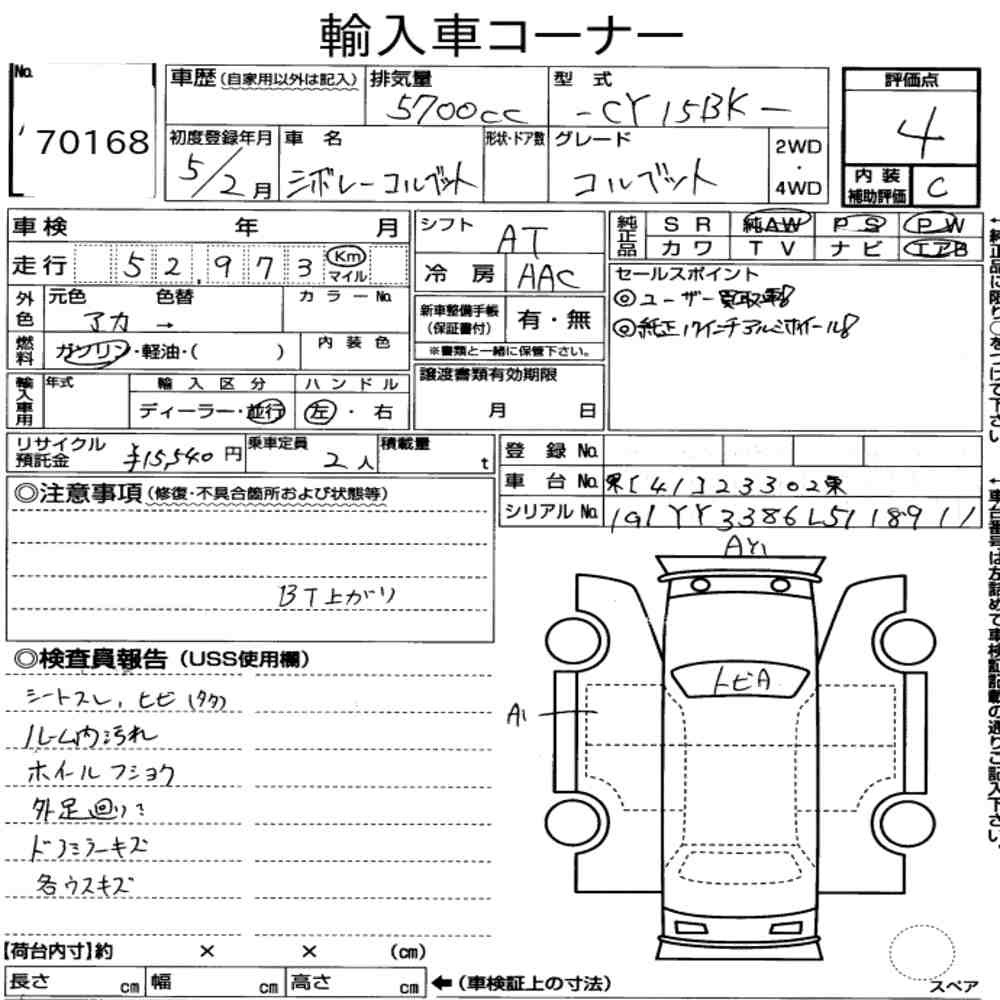 輸入車コーナー
No. 70168
車歴（自家用以外は記入） 排気量 5700cc 型式 -CY15BK-
評価点 4
初度登録年月 5/2月 車名 シボレーコルベット 形状・ドア数 グレード コルベット 2WD・4WD
内装補助評価 C
車検 年 月 シフト AT
純正品 SR 純AW PS PW
カワ TV ナビ エアB
走行 52,973 Km マイル 冷房 AAC
セールスポイント
◎ユーザー買取車!
◎純正17インチアルミホイール!
外色 元色 色替 アカ → カラーNo.
新車整備手帳（保証書付） 有・無
※書類と一緒に保管下さい。
燃料 ガソリン・軽油・( ) 内装色
譲渡書類有効期限 月 日
輸入車用 年式 輸入区分 ハンドル
ディーラー・並行 左・右
リサイクル預託金 ¥15,540円 乗車定員 2人 積載量 t
登録No.
車台No. 東[41]23302東
シリアルNo. 1G1YY3386L5118911
◎注意事項（修復・不具合箇所および状態等）
BT上がり
◎検査員報告（USS使用欄）
シートスレ、ヒビ
ルーム内汚れ
ホイールフショク
外足回り
ドアミラーキズ
各ウスキズ
AY1
トビA
A1
【荷台内寸】約 × × (cm)
長さ cm 幅 cm 高さ cm ←（車検証上の寸法）
スペア
←純正品に限り○をつけて下さい。
←車台番号は左詰めで車検証記載の通りご記入下さい。